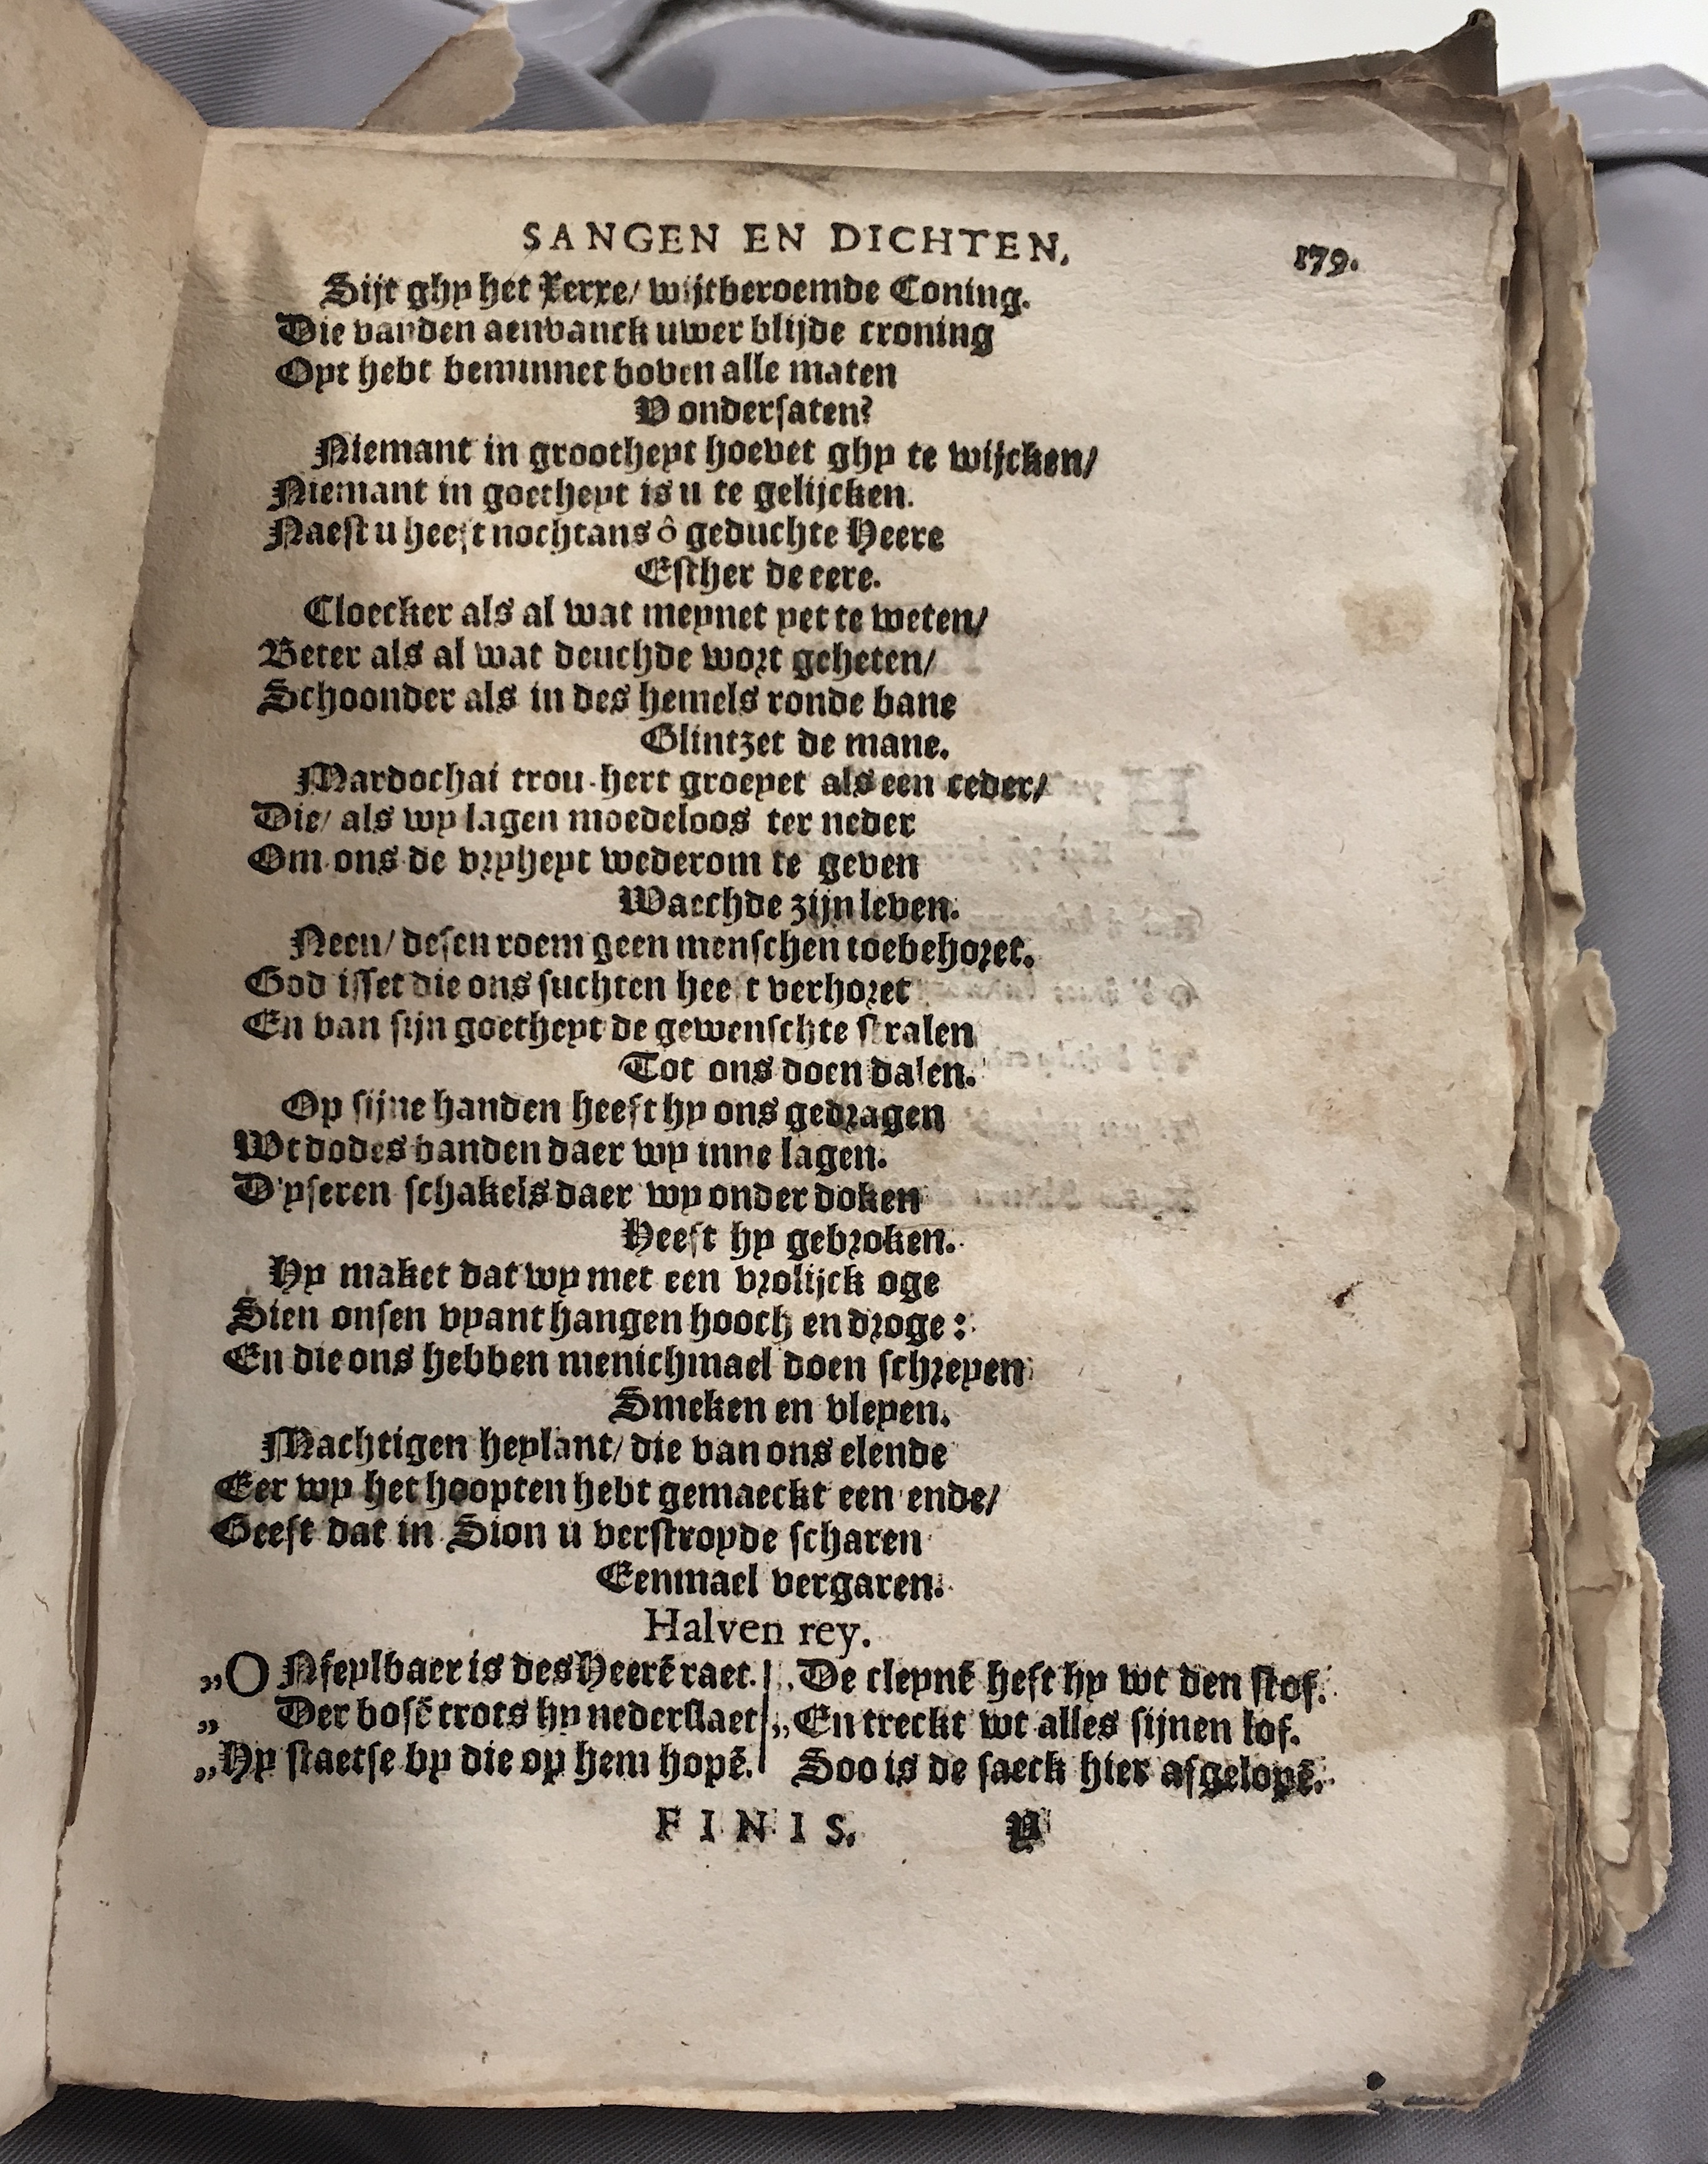 SANGEN EN DICHTEN. 179.
Sijt ghy het Xerxe/ wijtberoemde Coning.
Die vanden aenvanck uwer blijde croning
Oyt hebt beminnet boven alle maten
V ondersaten?
Niemant in grootheyt hoevet ghy te wijcken/
Niemant in goetheyt is u te gelijcken.
Naest u heeft nochtans ô geduchte Heere
Esther de eere.
Cloecker als al wat meynet yet te weten/
Beter als al wat deuchde wort geheten/
Schoonder als in des hemels ronde bane
Glintzet de mane.
Mardochai trou-hert groeyet als een ceder/
Die/ als wy lagen moedeloos ter neder
Om ons de vryheyt wederom te geven
Waechde zijn leven.
Neen/ desen roem geen menschen toebehoret.
God isset die ons suchten heeft verhoret
En van sijn goetheyt de gewenschte stralen
Tot ons doen dalen.
Op sijne handen heeft hy ons gedragen
Wt dodes banden daer wy inne lagen.
D'yseren schakels daer wy onder doken
Heeft hy gebroken.
Hy maket dat wy met een vrolijck oge
Sien onsen vyant hangen hooch en droge:
En die ons hebben menichmael doen schreyen
Smeken en vleyen.
Machtigen heylant/ die van ons elende
Eer wy het hoopten hebt gemaeckt een ende/
Geeft dat in Sion u verstroyde scharen
Eenmael vergaren.
Halven rey.
„ONfeylbaer is des Heerē raet.
„ Der bosē trots hy nederslaet
„Hy staetse by die op hem hopē.
„De cleynē heft hy wt den stof.
„En treckt wt alles sijnen lof.
Soo is de saeck hier afgelopē.
FINIS. Y